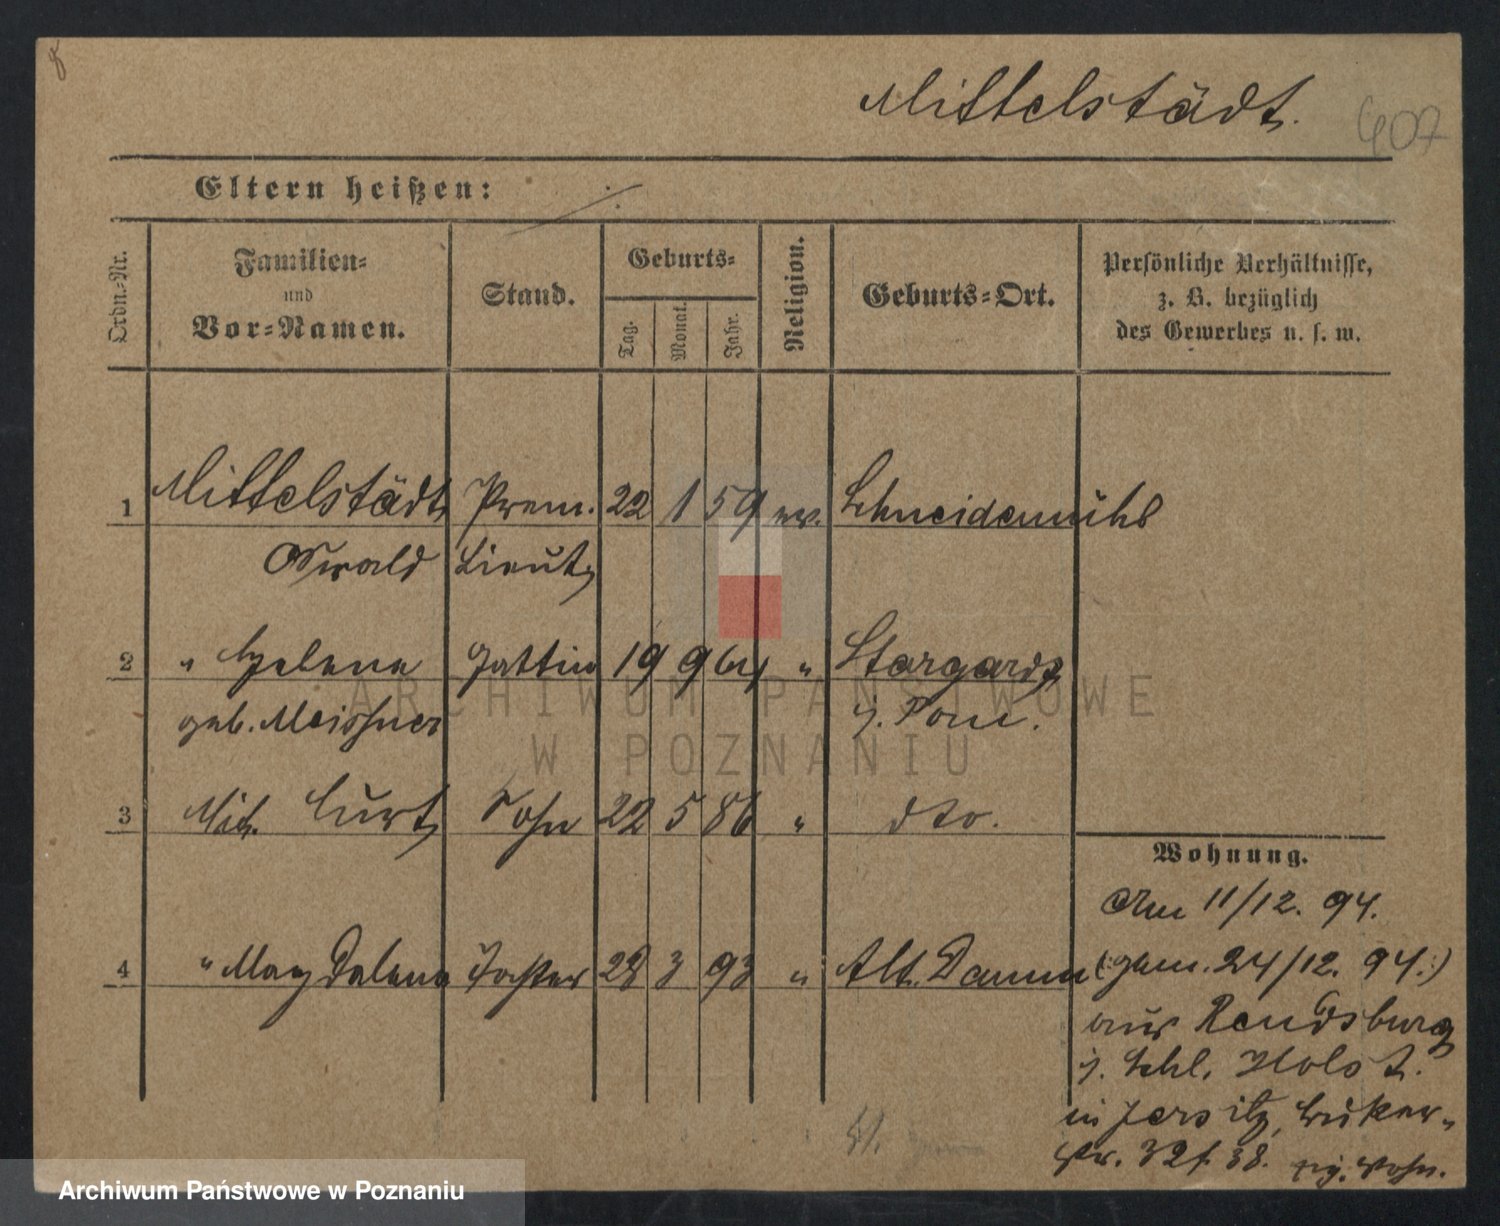 8
Mittelstädt.
407
Eltern heißen: ./.
Ordn.-Nr.
Familien-
und
Vor-Namen.
Stand.
Geburts-
Tag.
Monat.
Jahr.
Religion.
Geburts-Ort.
Persönliche Verhältnisse,
z. B. bezüglich
des Gewerbes u. s. w.
1 Mittelstädt Prem. 22 1 59 ev. Schneidemühl
Oswald Lieut.
2 " Helene Gattin 19 9 64 " Stargard
geb. Meissner i. Pom.
3 Mit. Curt Sohn 22 5 86 " dto.
Wohnung.
Am 11/12. 94.
4 " Magdalena Tochter 28 3 93 " Alt. Damm
(: gem. 24/12. 94 :)
aus Rendsburg
i. Schl. Holst.
in Jersitz,
str. 32 f. 38. Wohn.
ARCHIWUM PAŃSTWOWE
W POZNANIU
Archiwum Państwowe w Poznaniu